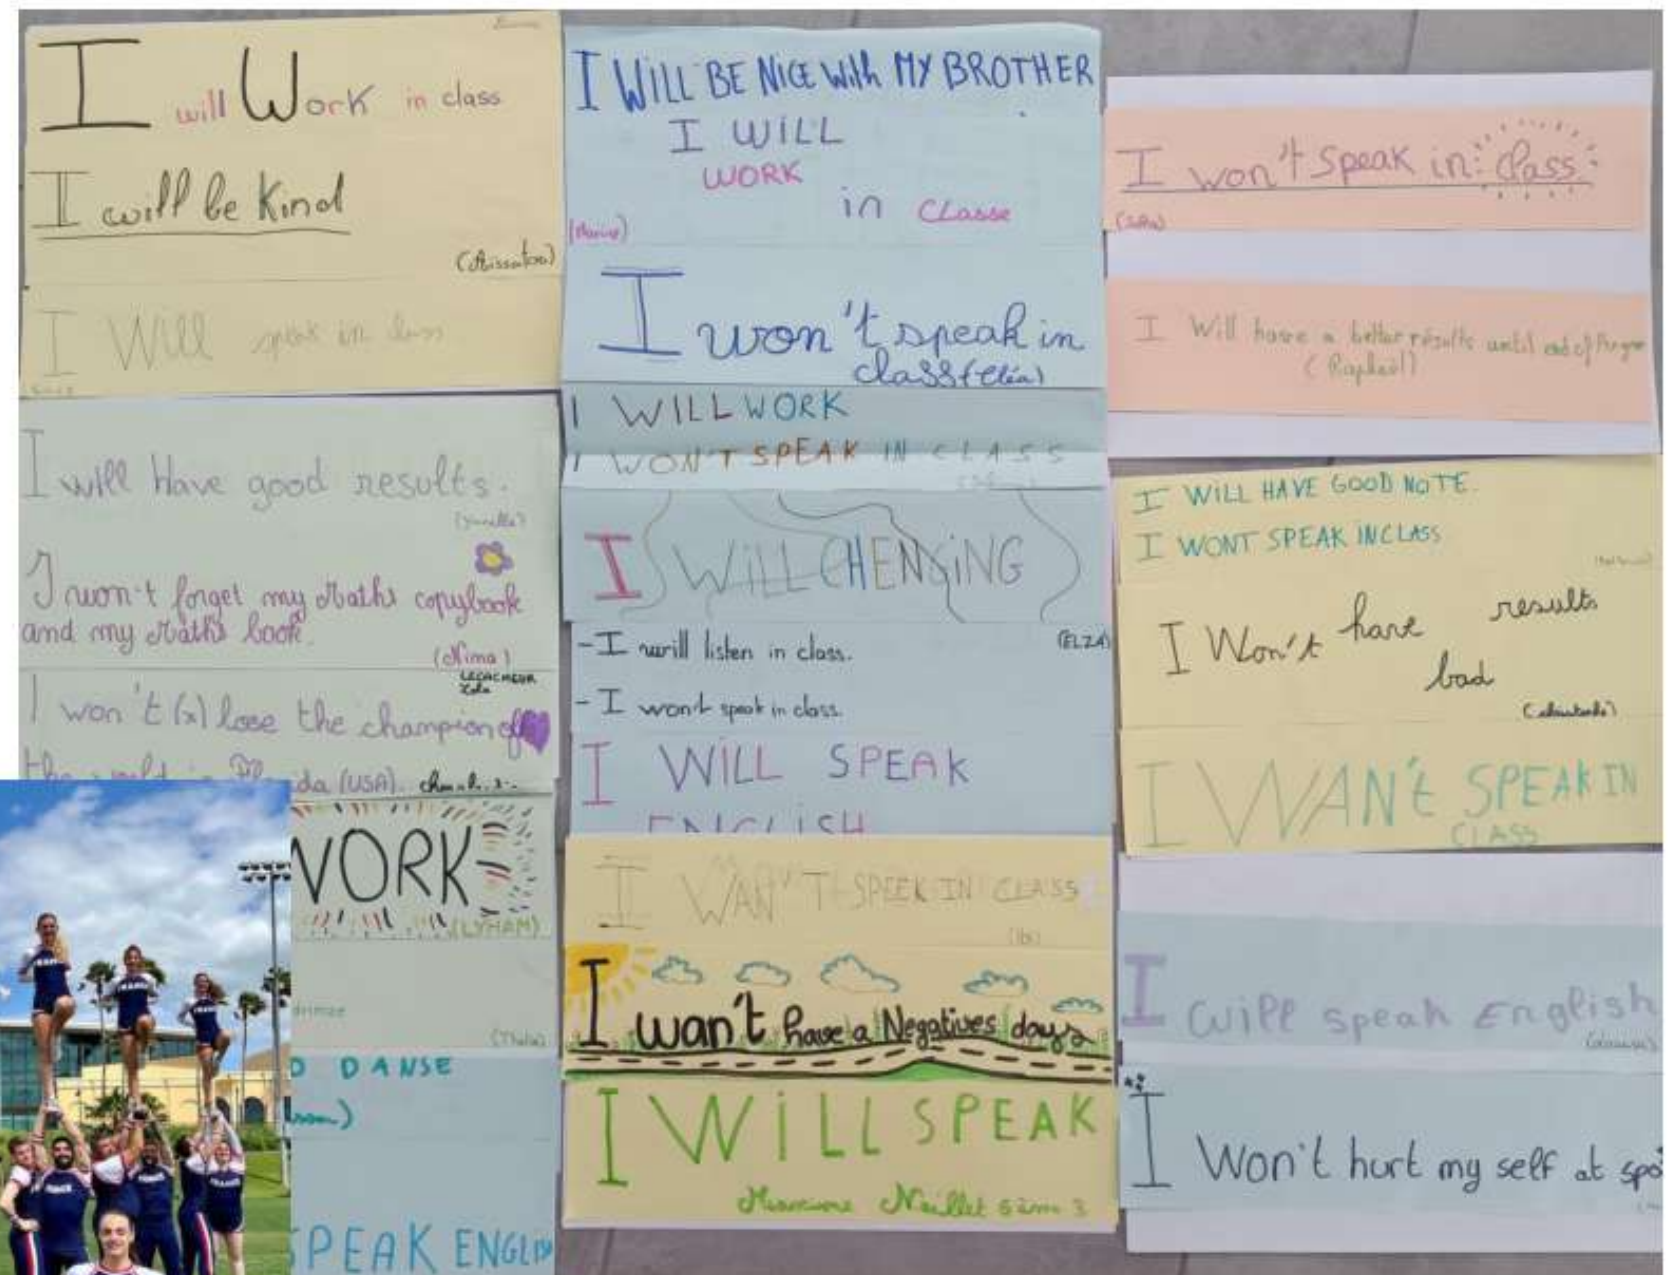 I will Work in class
I will be Kind
(Aissatou)
I Will speak in class
I will have good results.
I won't forget my Maths copybook
and my Maths book.
(Nima)
LECACHEUR
Lola
I won't (x) lose the champion of
the world in Florida (USA).
WORK
(LYHAM)
(Thalia)
D DANSE
SPEAK ENGLISH
I WILL BE NICE With MY BROTHER
I WILL
WORK
in Classe
(Marine)
I won't speak in
class (Cléa)
I WILL WORK
I WON'T SPEAK IN CLASS
I WILL CHENGING
- I will listen in class.
(ELZA)
- I won't speak in class.
I WILL SPEAK
ENGLISH
I WAN'T SPEEK IN CLASS
I wan't have a Negatives days
I WILL SPEAK
Naillet 5ème 3
I won't speak in class
I Will have a better résults until end of the year
(Raphaël)
I WILL HAVE GOOD NOTE.
I WONT SPEAK IN CLASS
I Won't have bad results
I WAN't SPEAK IN
CLASS
I will speak English
I Won't hurt my self at spo
FRANCE